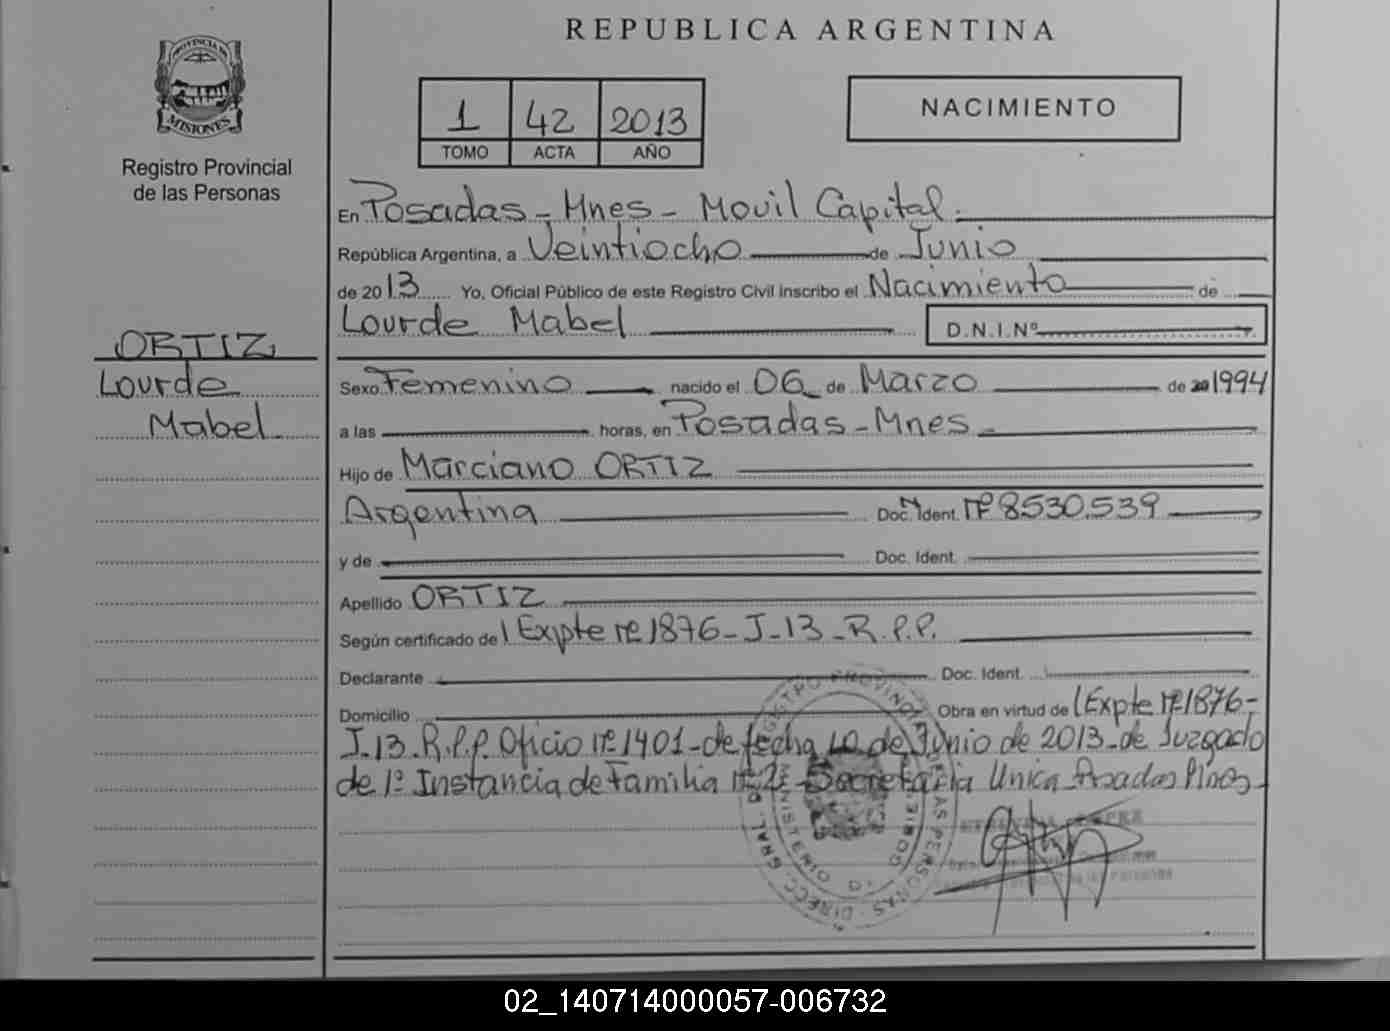 REPUBLICA ARGENTINA
PROVINCIA DE
MISIONES
Registro Provincial
de las Personas
1 42 2013
TOMO ACTA AÑO
NACIMIENTO
En Posadas - Mnes - Movil Capital.
República Argentina, a Veintiocho de Junio
de 2013 Yo, Oficial Público de este Registro Civil inscribo el Nacimiento de
Lourde Mabel D.N.I.Nº
ORTIZ
Lourde
Mabel
Sexo Femenino nacido el 06 de Marzo de 1994
a las horas, en Posadas - Mnes -
Hijo de Marciano ORTIZ
Argentina Doc. Ident. Nº 8.530.539
y de Doc. Ident.
Apellido ORTIZ
Según certificado de Expte nº 1876 - J - 13 - R.P.P.
Declarante Doc. Ident.
Domicilio Obra en virtud de Expte Nº 1876 -
J.13. R.P.P. Oficio nº 1401 - de fecha 10 de Junio de 2013 - de Juzgado
de 1º Instancia de Familia nº 2 - Secretaria Unica Posadas Mnes -
REGISTRO PROVINCIAL DE LAS PERSONAS
DIRECC. GRAL. D
MINISTERIO D GOBIE
de las Personas
02_140714000057-006732